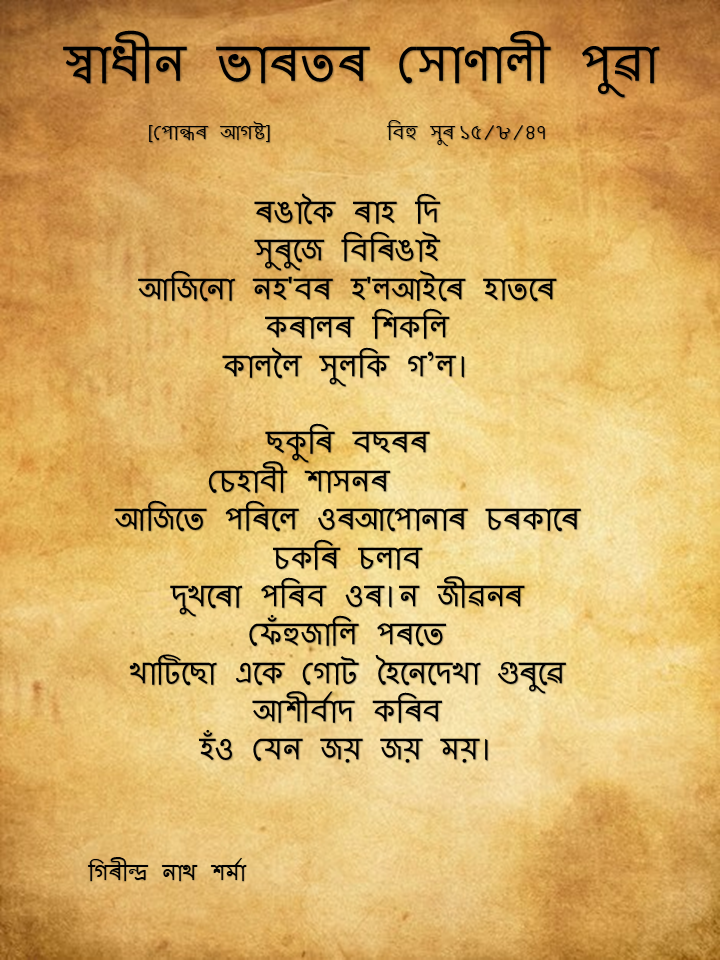 স্বাধীন ভাৰতৰ সোণালী পুৱা
[পোন্ধৰ আগষ্ট] বিহু সুৰ ১৫/৮/৪৭
ৰঙাকৈ ৰাহ দি
সুৰুজে বিৰিঙাই
আজিনো নহ'বৰ হ'লআইৰে হাতৰে
কৰালৰ শিকলি
কাললৈ সুলকি গ’ল।
ছকুৰি বছৰৰ
চেহাবী শাসনৰ
আজিতে পৰিলে ওৰআপোনাৰ চৰকাৰে
চকৰি চলাব
দুখৰো পৰিব ওৰ। ন জীৱনৰ
ফেঁহুজালি পৰতে
খাটিছো একে গোট হৈনেদেখা গুৰুৱে
আশীৰ্বাদ কৰিব
হঁও যেন জয় জয় ময়।
গিৰীন্দ্ৰ নাথ শৰ্মা